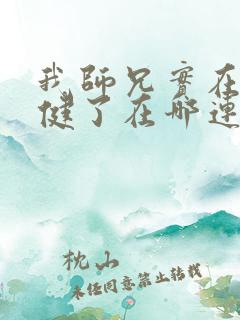 我師兄實在
健了在哪連
枕山
未经同意禁止转载